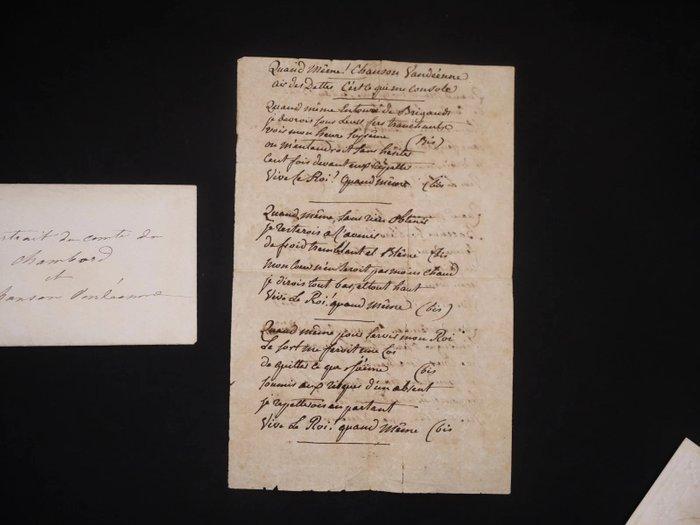 Quand Même! Chanson Vandéenne
air des Dettes C'est ce qui me console
Quand même Entouré de Brigands
je devrois sous leurs fers tranchants
vois mon heure suprême (Bis)
on m'entendroit sans hésiter
Cent fois devant eux répetter
Vive Le Roi! Quand Même (bis
Quand même, sans rien obtenir
je resterois à l'avenir
de froid tremblant et Blême (bis
mon coeur n'en seroit pas moins chaud
je dirois tout bas, et tout haut
Vive Le Roi! quand Même (bis)
Quand même pour servir mon Roi
Le sort me feroit une Loi
de quitter ce que j'aime (bis
soumis aux risques d'un absent
je répetterois en partant
Vive Le Roi! quand Même (bis
portrait du comte de
Chambord
et
chanson Vendéenne